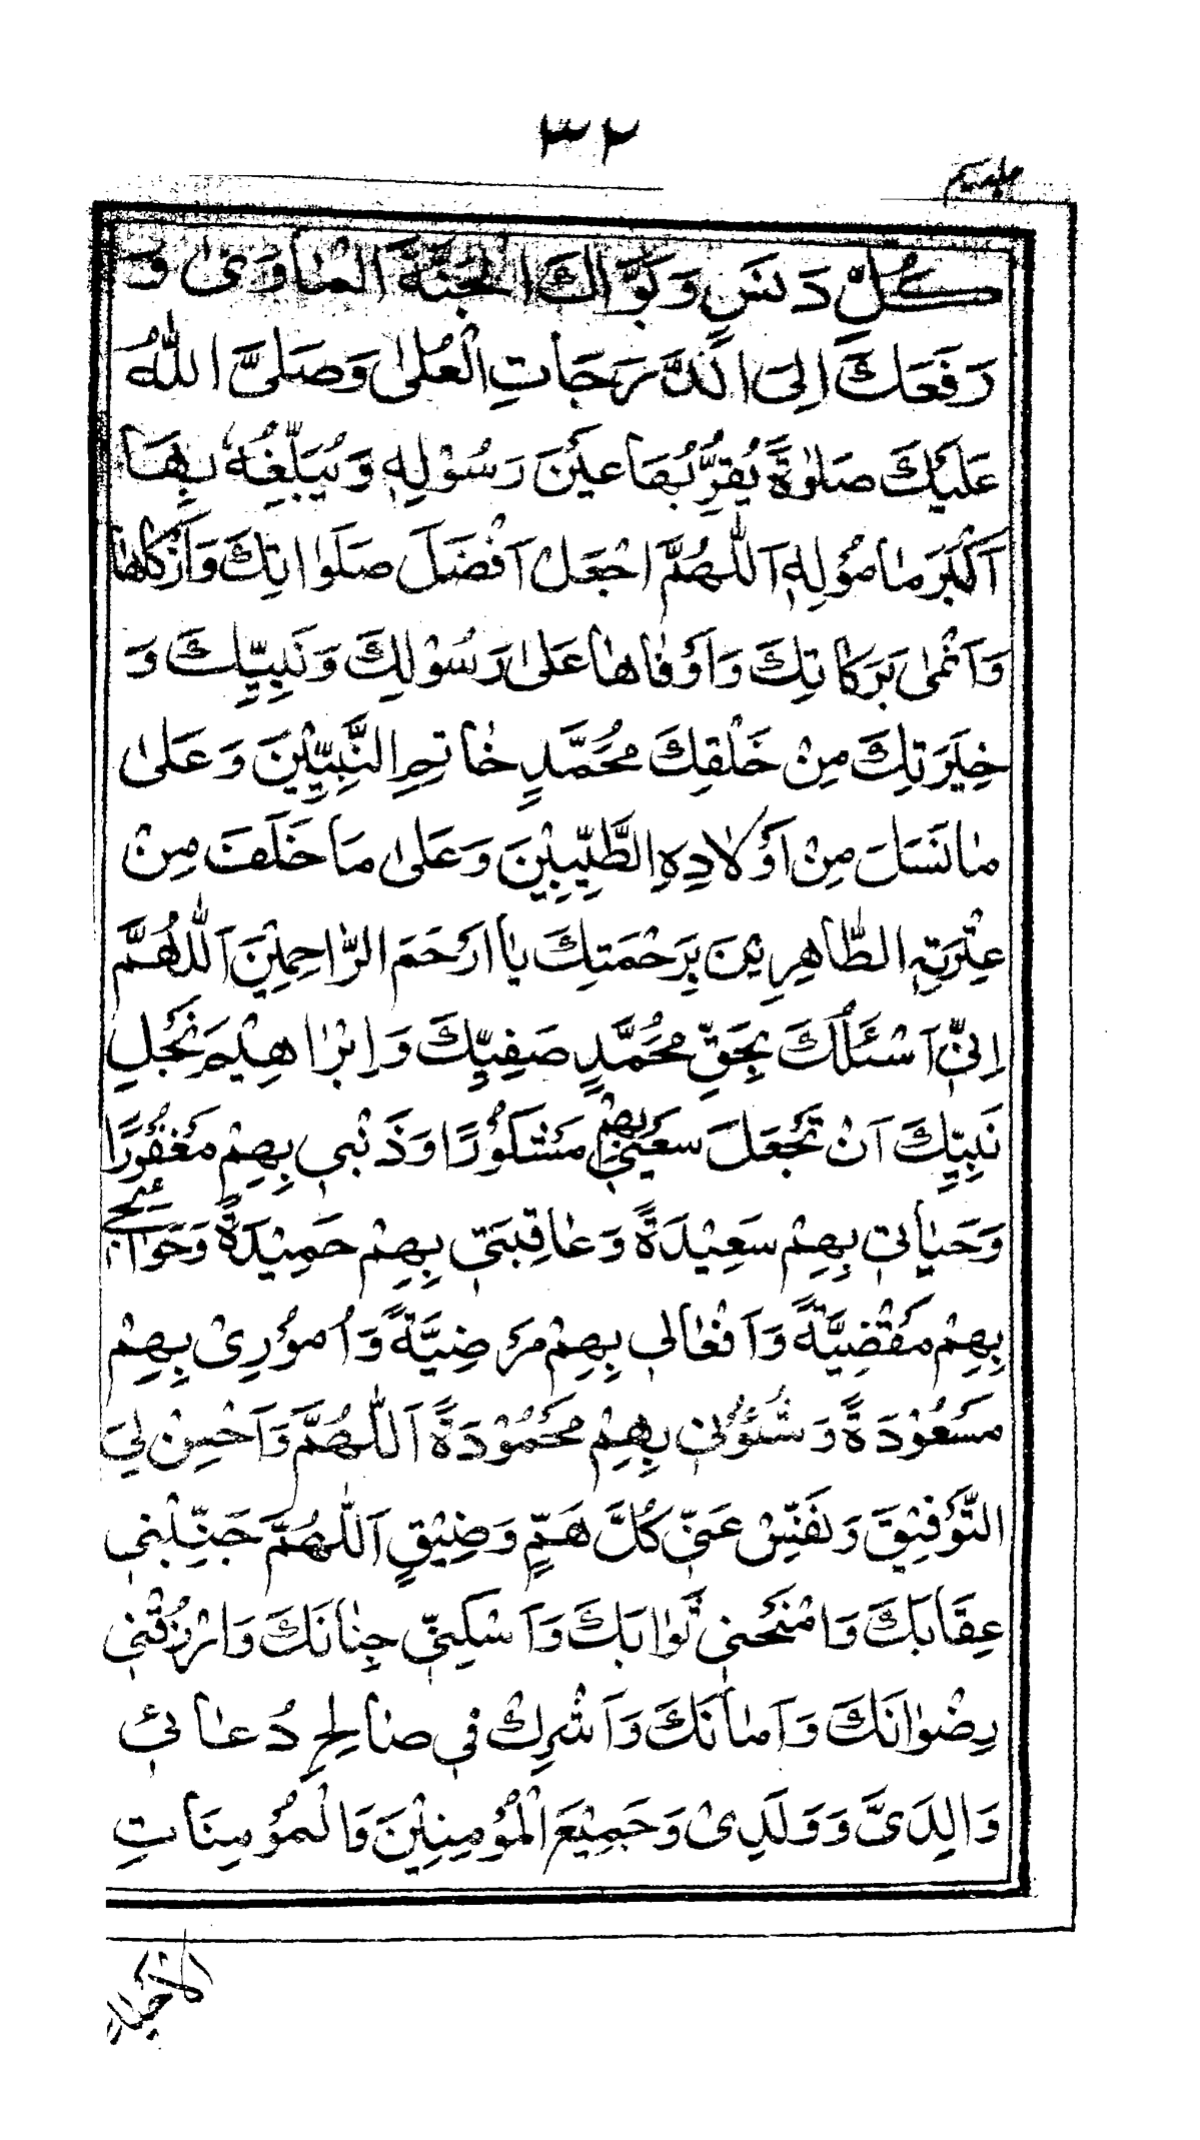 ٣٢
جلد سیم
كُلِّ دَنَسٍ وَبَوَّاَكَ الْجَنَّةَ الْمَاْوٰى وَ
رَفَعَكَ اِلَى الدَّرَجَاتِ الْعُلٰى وَصَلَّى اللّٰهُ
عَلَيْكَ صَلٰوةً يُقِرُّ بِهَا عَيْنَ رَسُوْلِهٖ وَيُبَلِّغُهُ بِهَا
اَكْبَرَ مَاْمُوْلِهٖ اَللّٰهُمَّ اجْعَلْ اَفْضَلَ صَلَوٰاتِكَ وَاَزْكٰاهٰا
وَاَنْمٰى بَرَكٰاتِكَ وَاَوْفٰاهٰا عَلٰى رَسُوْلِكَ وَنَبِيِّكَ وَ
خِيَرَتِكَ مِنْ خَلْقِكَ مُحَمَّدٍ خٰاتِمِ النَّبِيِّيْنَ وَعَلٰى
مٰا نَسَلَ مِنْ اَوْلٰادِهِ الطَّيِّبِيْنَ وَعَلٰى مَا خَلَفَ مِنْ
عِتْرَتِهِ الطّٰاهِرِيْنَ بِرَحْمَتِكَ يٰا اَرْحَمَ الرّٰاحِمِيْنَ اَللّٰهُمَّ
اِنِّيْ اَسْئَلُكَ بِحَقِّ مُحَمَّدٍ صَفِيِّكَ وَاِبْرٰاهِيْمَ نَجْلِ
نَبِيِّكَ اَنْ تَجْعَلَ سَعْيِيْ بِهِمْ مَشْكُوْرًا وَذَنْبِيْ بِهِمْ مَغْفُوْرًا
وَحَيٰاتِيْ بِهِمْ سَعِيْدَةً وَعٰاقِبَتِيْ بِهِمْ حَمِيْدَةً وَحَوٰائِجِيْ
بِهِمْ مَقْضِيَّةً وَاَفْعٰالِيْ بِهِمْ مَرْضِيَّةً وَاُمُوْرِيْ بِهِمْ
مَسْعُوْدَةً وَشُئُوْنِيْ بِهِمْ مَحْمُوْدَةً اَللّٰهُمَّ وَاَحْسِنْ لِيَ
التَّوْفِيْقَ وَنَفِّسْ عَنِّيْ كُلَّ هَمٍّ وَضِيْقٍ اَللّٰهُمَّ جَنِّبْنِيْ
عِقَابَكَ وَامْنَحْنِيْ ثَوٰابَكَ وَاَسْكِنِّيْ جِنٰانَكَ وَارْزُقْنِيْ
رِضْوٰانَكَ وَاَمٰانَكَ وَاَشْرِكْ فِيْ صٰالِحِ دُعٰائِيْ
وَالِدَيَّ وَوَلَدِيْ وَجَمِيْعَ الْمُؤْمِنِيْنَ وَالْمُؤْمِنَاتِ
الْاَحْيَاءِ